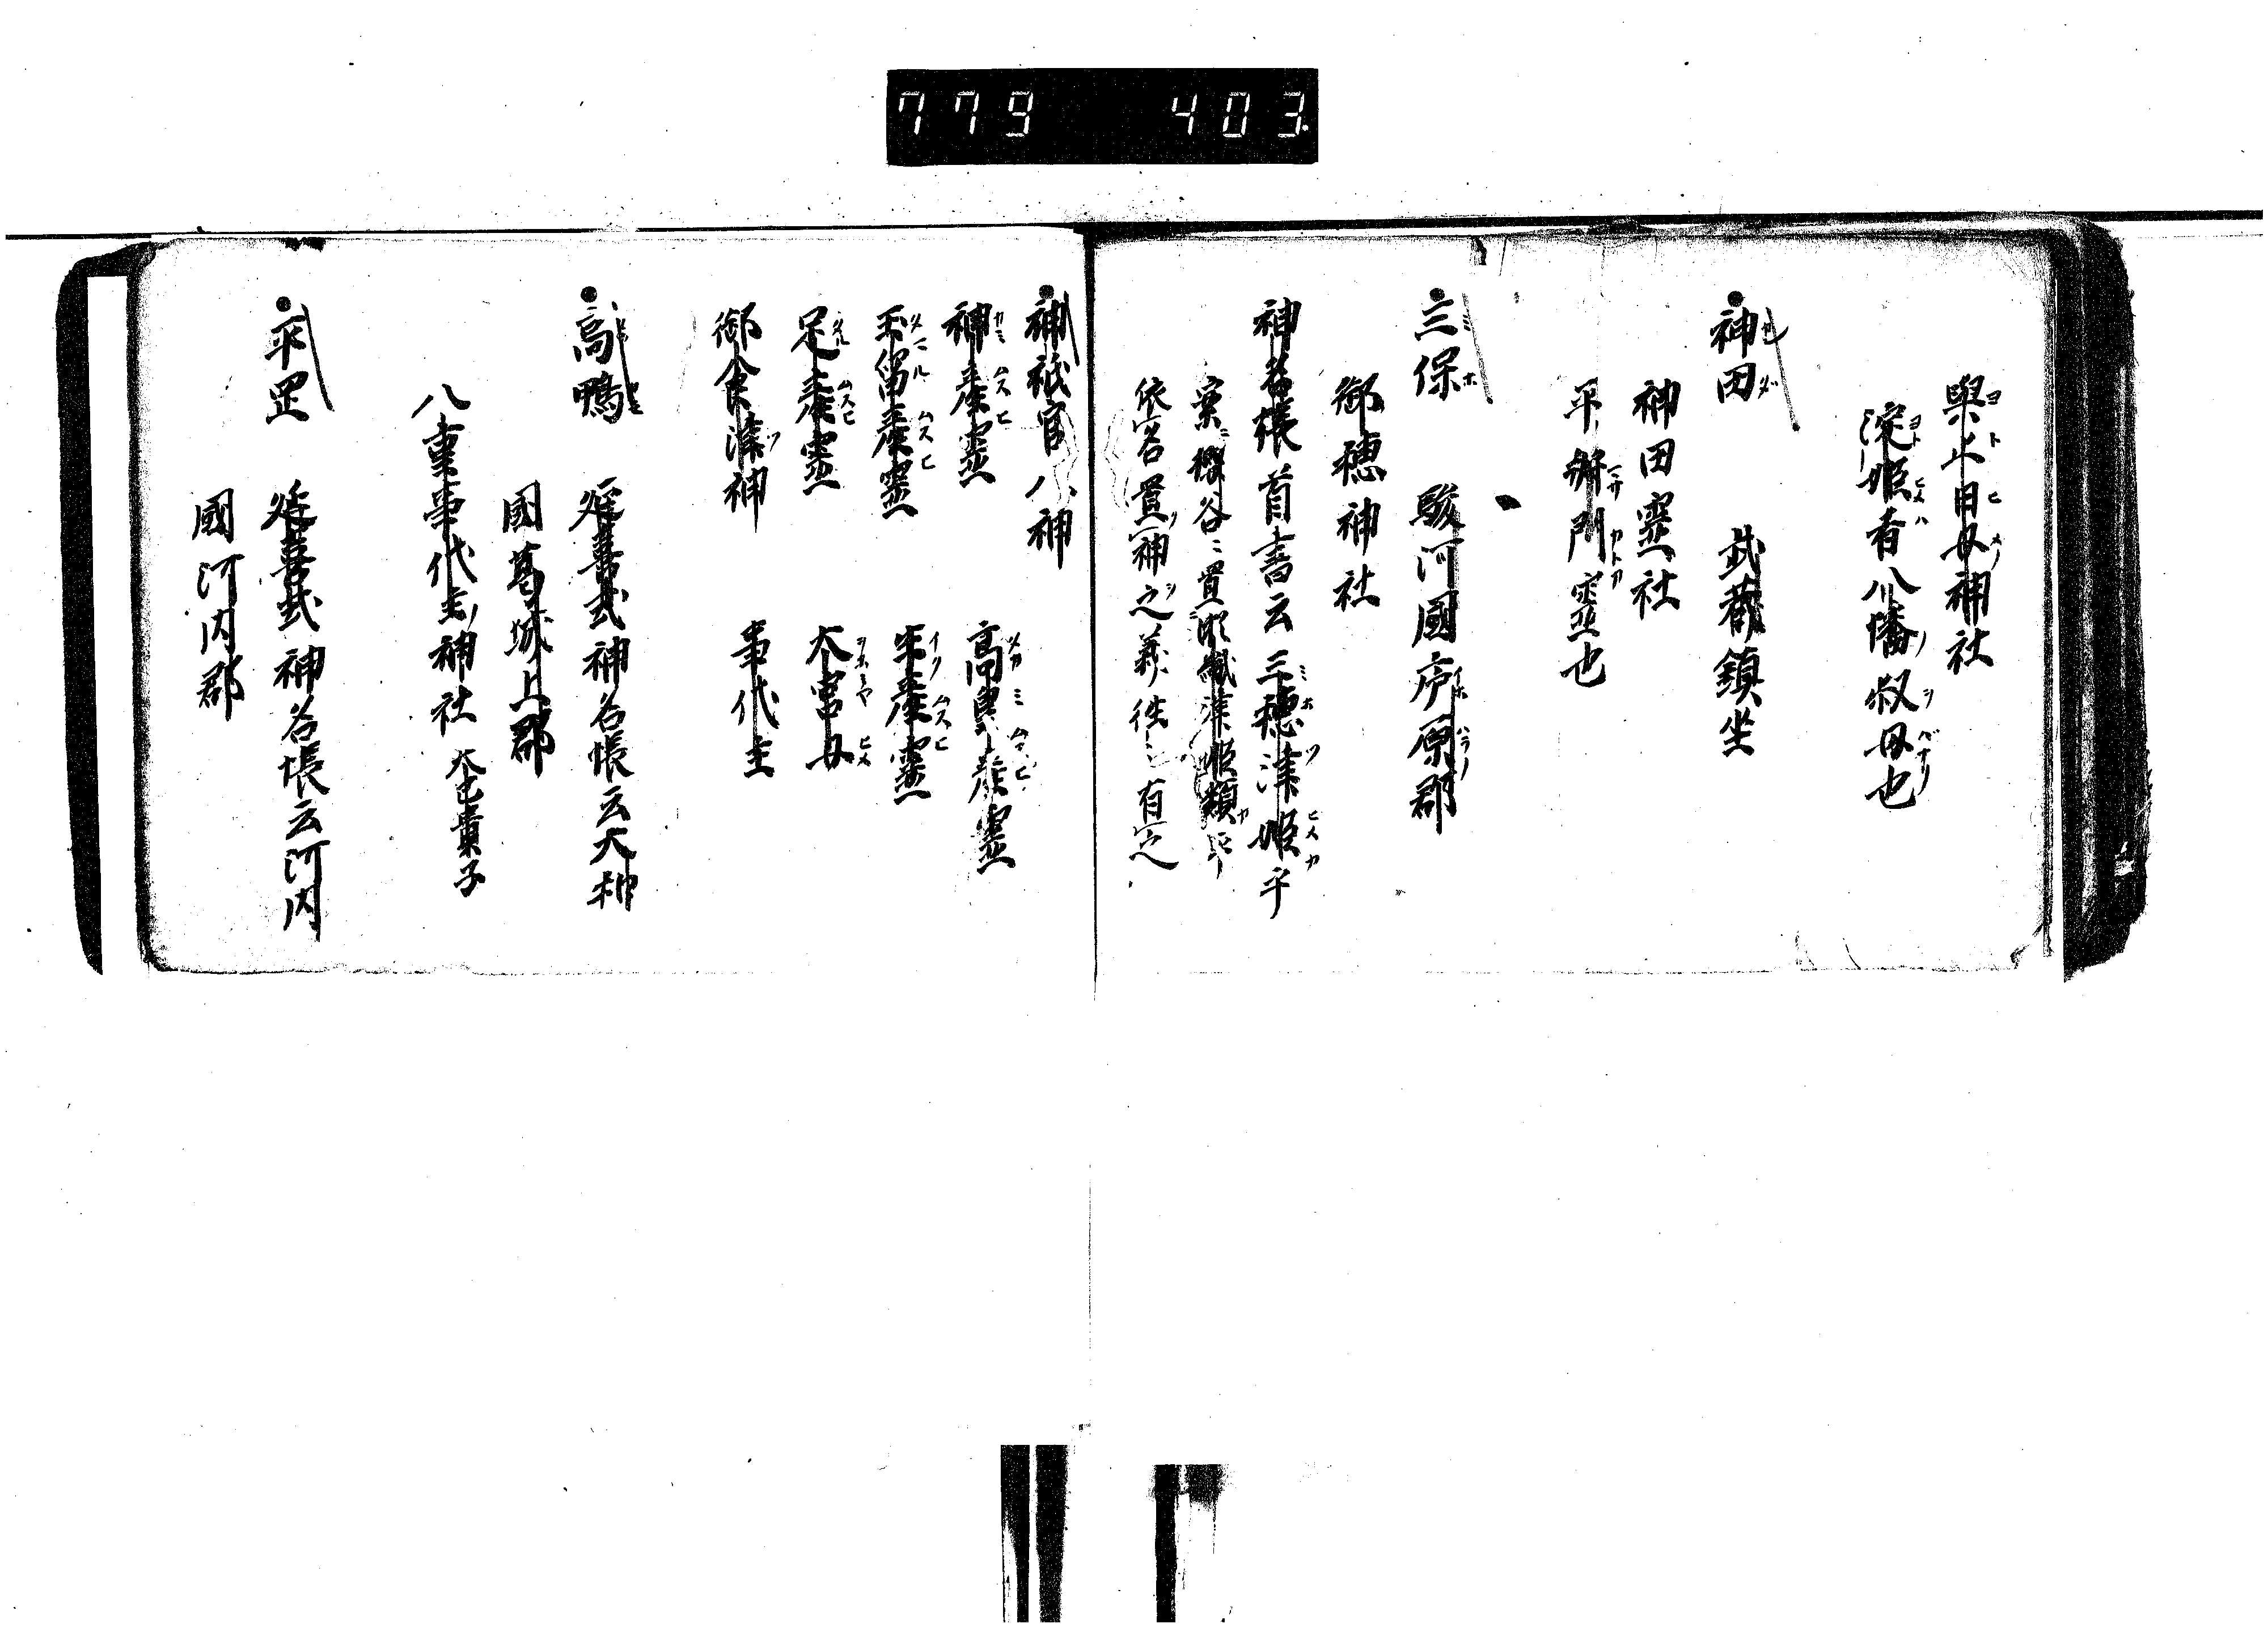 779 403
與止日女神社
淀姫者八幡叔母也
神田 武蔵鎮坐
神田靈社
平将門靈也
三保 駿河國庐原郡
御穂神社
神名帳首書云三穂津姫乎
依客置神之義徃々有之
神祇官八神
神産靈 高皇産靈
玉留産靈 生産靈
足産靈 大宮女
御食津神 事代主
高鴨 延喜式神名帳云大和
國葛城上郡
八重事代主神社 大己貴子
平岡 延喜式神名帳云河内
國河内郡